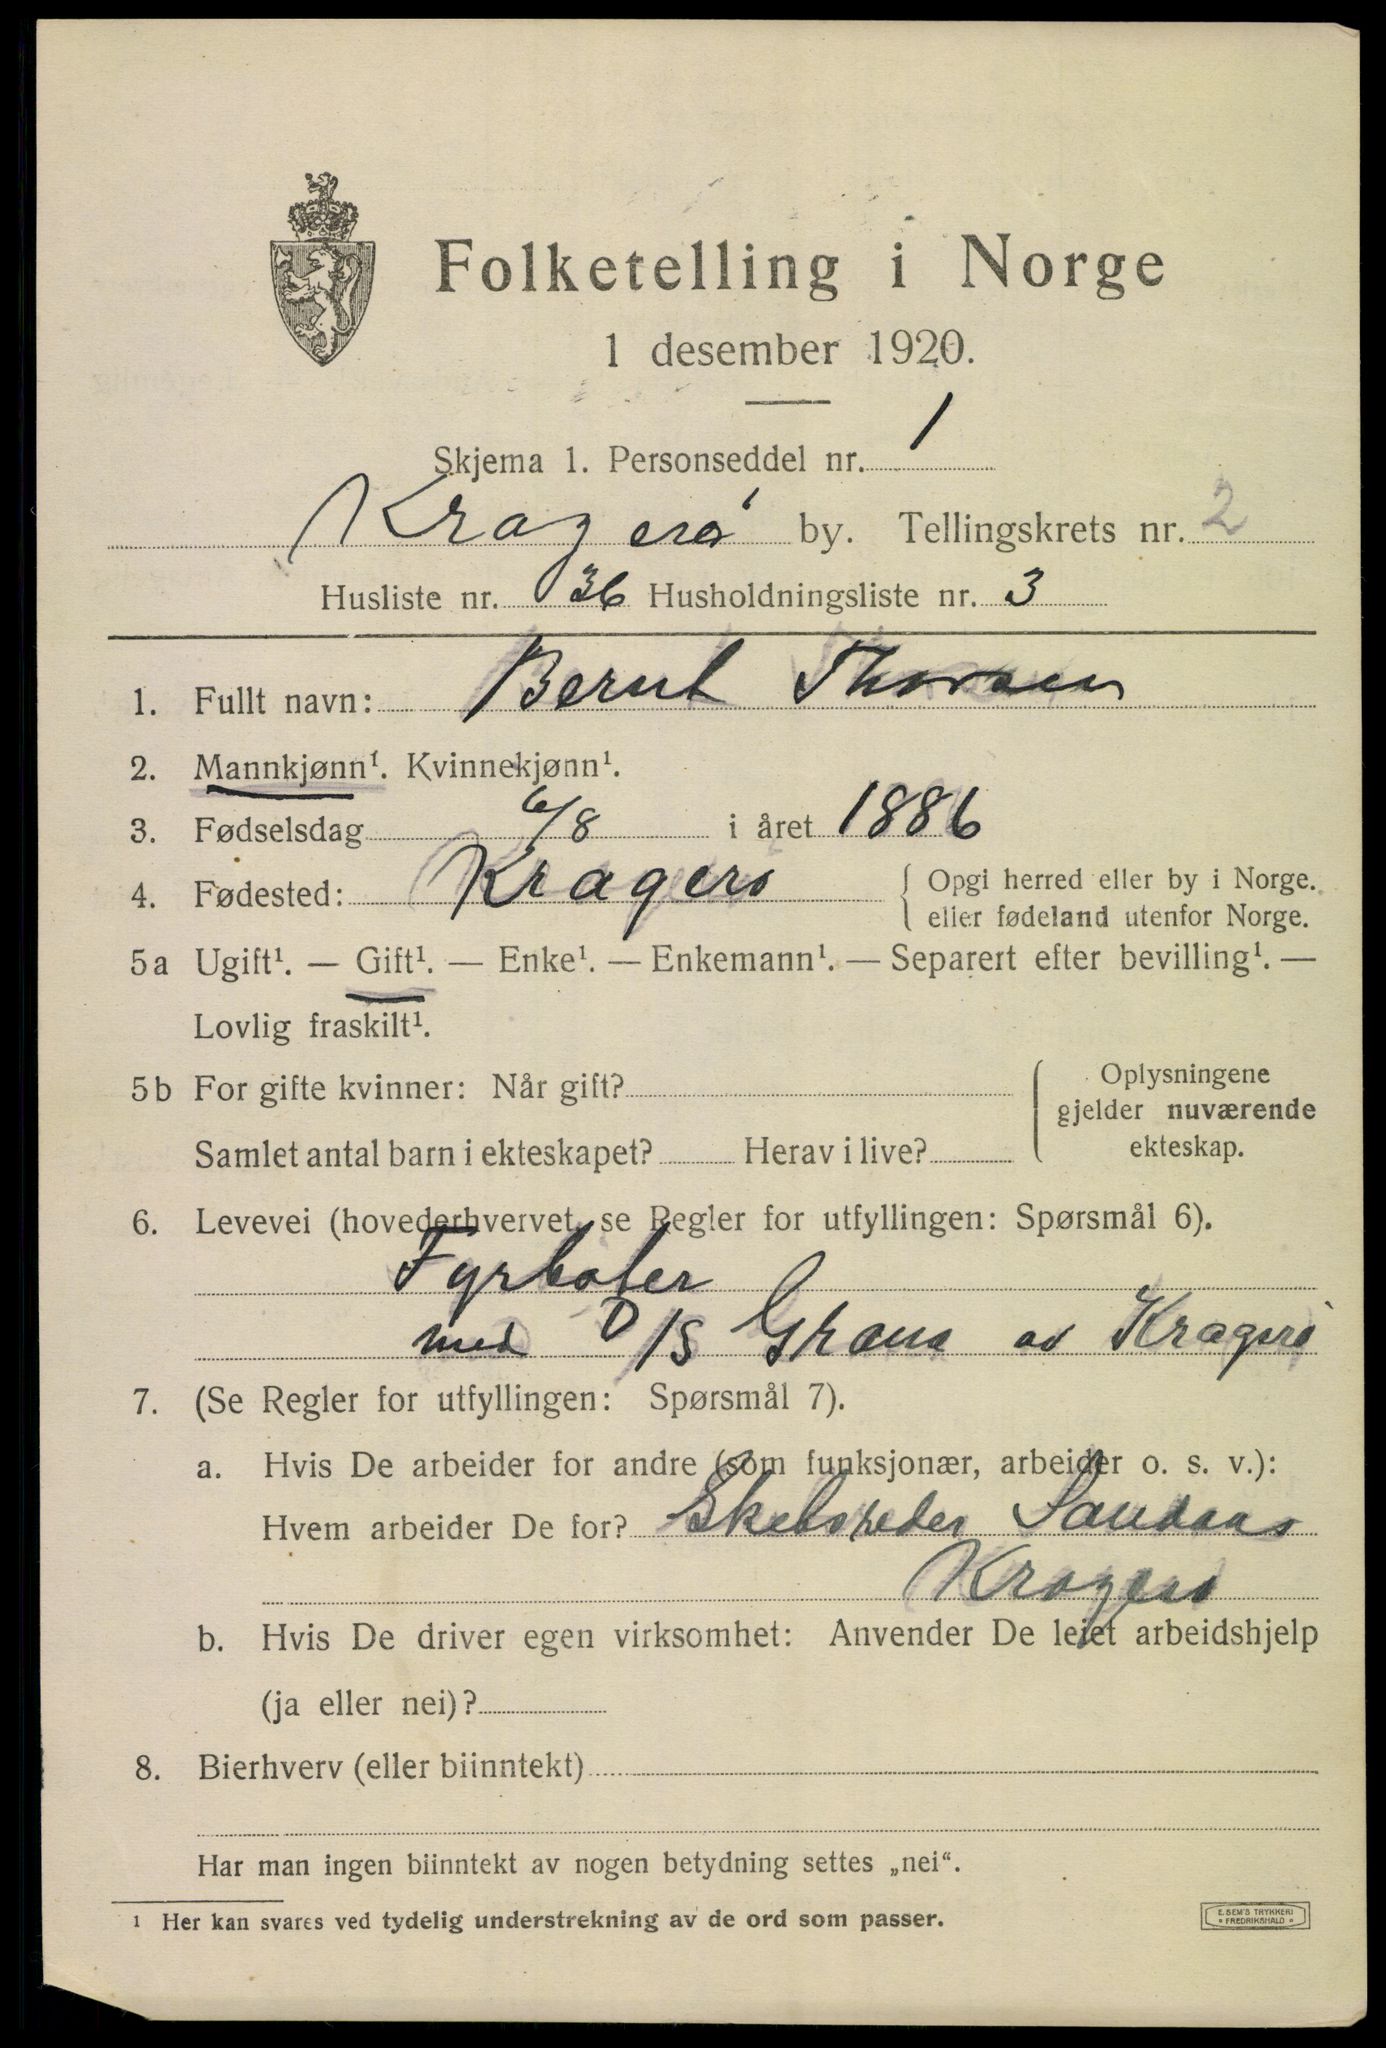 Folketelling i Norge
1 desember 1920.
Skjema 1. Personseddel nr. 1
Kragerø by. Tellingskrets nr. 2
Husliste nr. 36 Husholdningsliste nr. 3
1. Fullt navn: Bernt Thorsen
2. Mannkjønn¹. Kvinnekjønn¹.
3. Fødselsdag 6/8 i året 1886
4. Fødested: Kragerø { Opgi herred eller by i Norge.
eller fødeland utenfor Norge.
5a Ugift¹. — Gift¹. — Enke¹. — Enkemann¹. — Separert efter bevilling¹. —
Lovlig fraskilt¹.
5b For gifte kvinner: Når gift? { Oplysningene
gjelder nuværende
Samlet antal barn i ekteskapet? Herav i live? ekteskap.
6. Levevei (hovederhvervet, se Regler for utfyllingen: Spørsmål 6).
Fyrbøter
med D/S av Kragerø
7. (Se Regler for utfyllingen: Spørsmål 7).
a. Hvis De arbeider for andre (som funksjonær, arbeider o. s. v.):
Hvem arbeider De for? Skibsreder
Kragerø
b. Hvis De driver egen virksomhet: Anvender De leiet arbeidshjelp
(ja eller nei)?
8. Bierhverv (eller biinntekt)
Har man ingen biinntekt av nogen betydning settes „nei“.
¹ Her kan svares ved tydelig understrekning av de ord som passer.
E. SEM'S TRYKKERI
FREDRIKSHALD